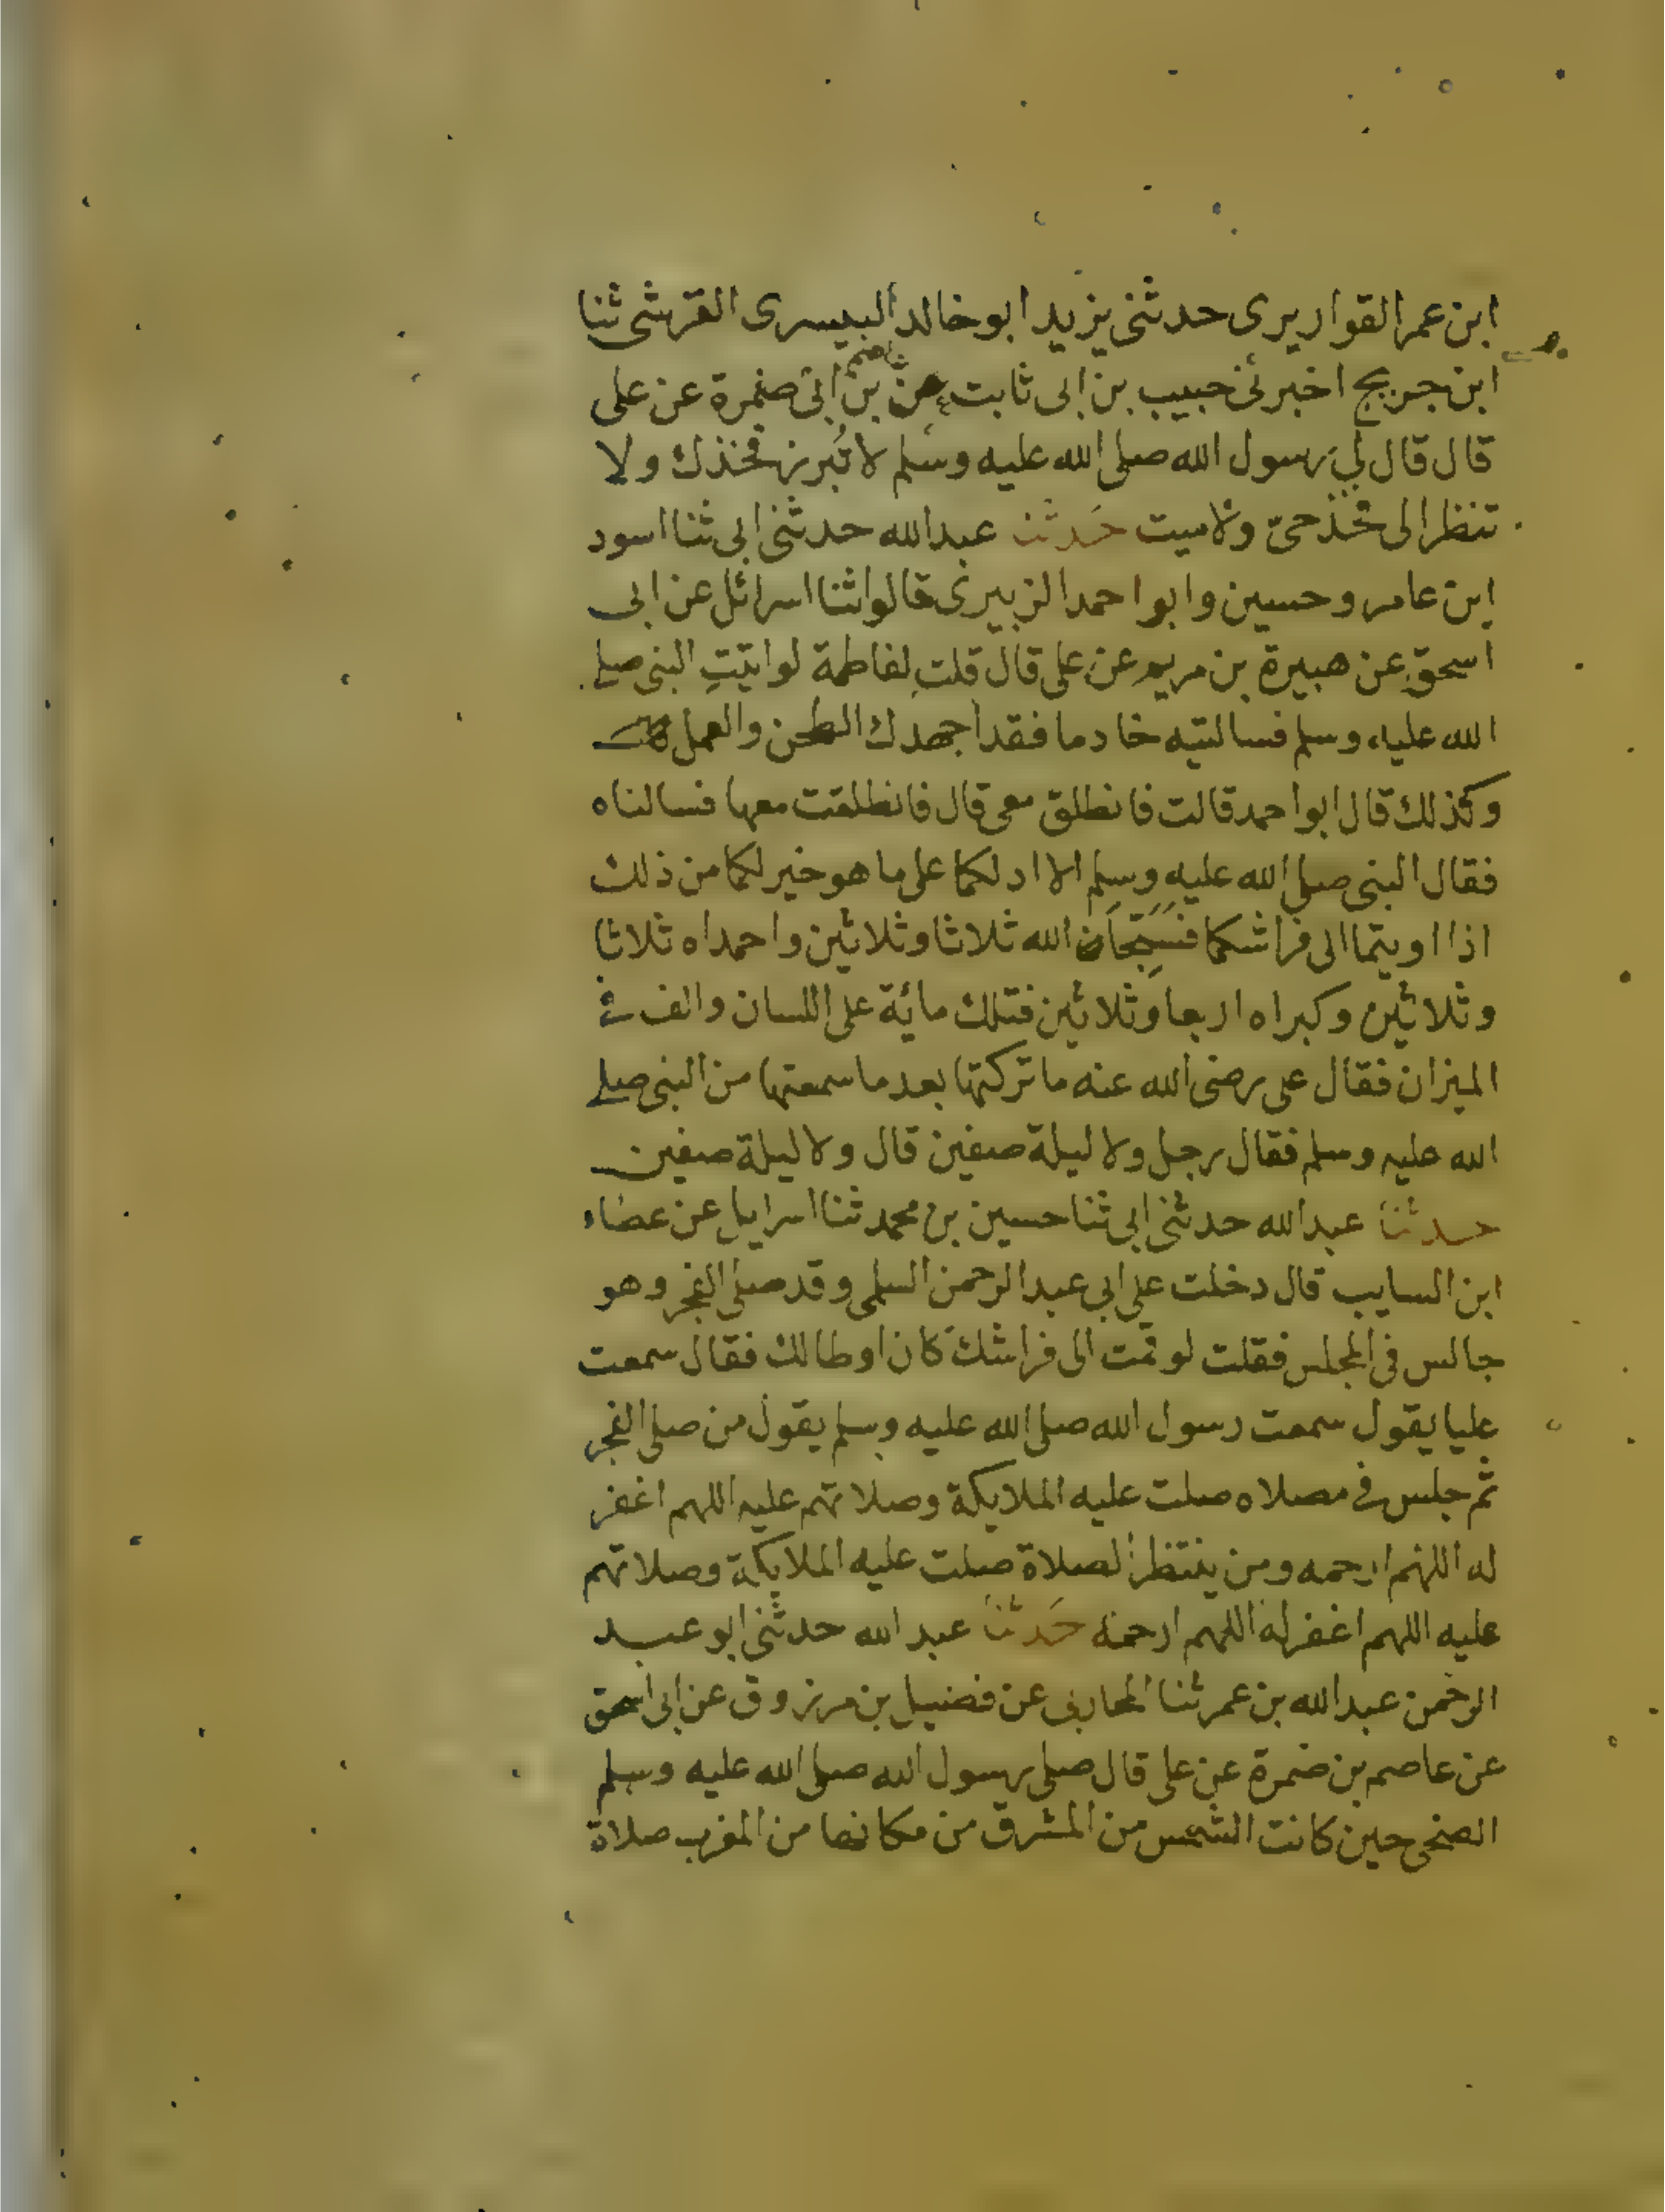 ابن عمر القواريرى حدثنى يزيد ابو خالد البيسرى القرشى ثنا
ابن جريج اخبرنى حبيب بن ابى ثابت عن عاصم بن ابى ضمرة عن على
قال قال لى رسول الله صلى الله عليه وسلم لا تُبرز فخذك ولا
تنظر الى فخذ حىّ ولا ميت حَدثنا عبد الله حدثنى ابى ثنا اسود
ابن عامر وحسين وابو احمد الزبيرى قالوا ثنا اسرائل عن ابى
اسحق عن هبيرة بن مريم عن على قال قلت لفاطمة لو اتيتِ النبى صلى
الله عليه وسلم فسالتيه خادما فقد اجهدك الطحن والعمل
وكذلك قال ابو احمد قالت فانطلق معى قال فانطلقت معها فسالناه
فقال النبى صلى الله عليه وسلم الا ادلكما على ما هو خير لكما من ذلك
اذا اويتما الى فراشكما فسَبِّحَا الله ثلاثا وثلاثين واحمداه ثلاثا
وثلاثين وكبراه اربعا وثلاثين فتلك مائة على اللسان والف فى
الميزان فقال على رضى الله عنه ما تركتها بعد ما سمعتها من النبى صلى
الله عليه وسلم فقال رجل ولا ليلة صفين قال ولا ليلة صفين
حدثنا عبد الله حدثنى ابى ثنا حسين بن محمد ثنا اسرايل عن عطاء
ابن السايب قال دخلت على ابى عبد الرحمن السلمى وقد صلى الفجر وهو
جالس فى المجلس فقلت لو قمت الى فراشك كان اوطا لك فقال سمعت
عليا يقول سمعت رسول الله صلى الله عليه وسلم يقول من صلى الفجر
ثم جلس فى مصلاه صلت عليه الملايكة وصلاتهم عليه اللهم اغفر
له اللهم ارحمه ومن ينتظر الصلاة صلت عليه الملايكة وصلاتهم
عليه اللهم اغفر له اللهم ارحمه حَدثنا عبد الله حدثنى ابو عبد
الرحمن عبد الله بن عمر ثنا المحاربى عن فضيل بن مرزوق عن ابى اسحق
عن عاصم بن ضمرة عن على قال صلى رسول الله صلى الله عليه وسلم
الضحى حين كانت الشمس من المشرق من مكانها من المغرب صلاة